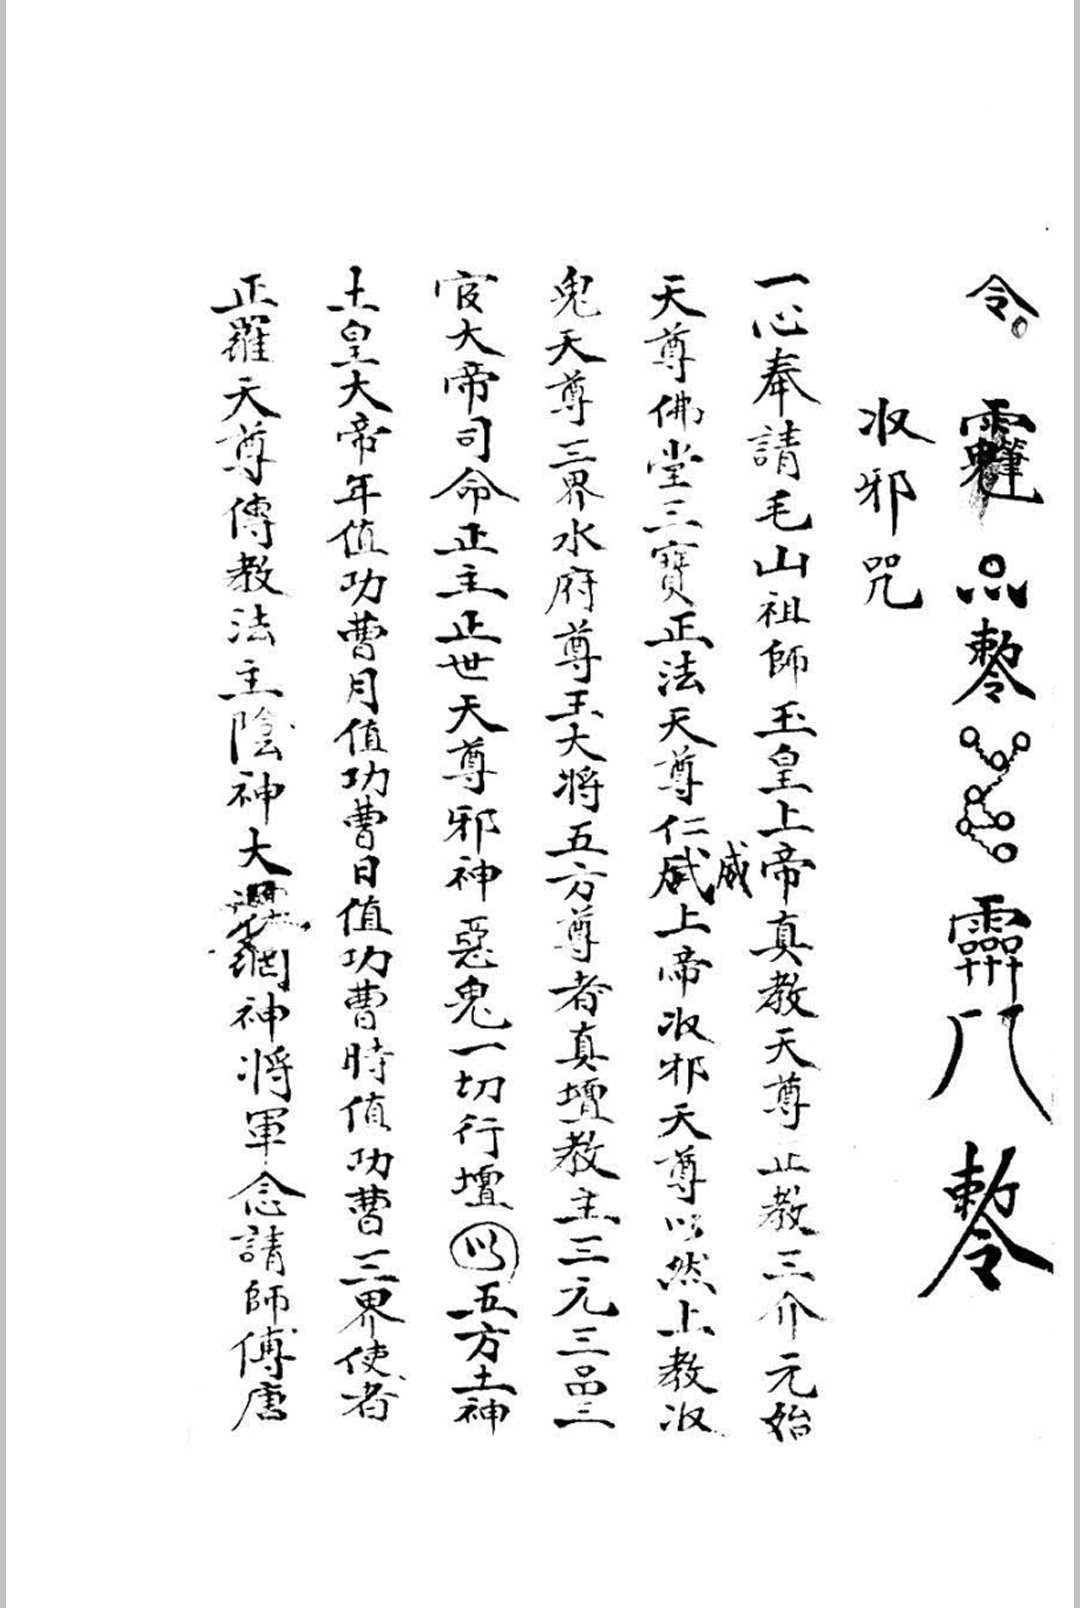 令 品 𠡠令 靈 八 𠡠令
收邪咒
一心奉請毛山祖師玉皇上帝真教天尊正教三介元始
天尊佛堂三寶正法天尊仁威上帝收邪天尊以然上教收
鬼天尊三界水府尊玉大将五方尊者真壇教主三元三品三
官大帝司命正主正世天尊邪神惡鬼一切行壇以五方土神
土皇大帝年值功曹月值功曹日值功曹時值功曹三界使者
正羅天尊傳教法主陰神大羅網神将軍念請師傅唐